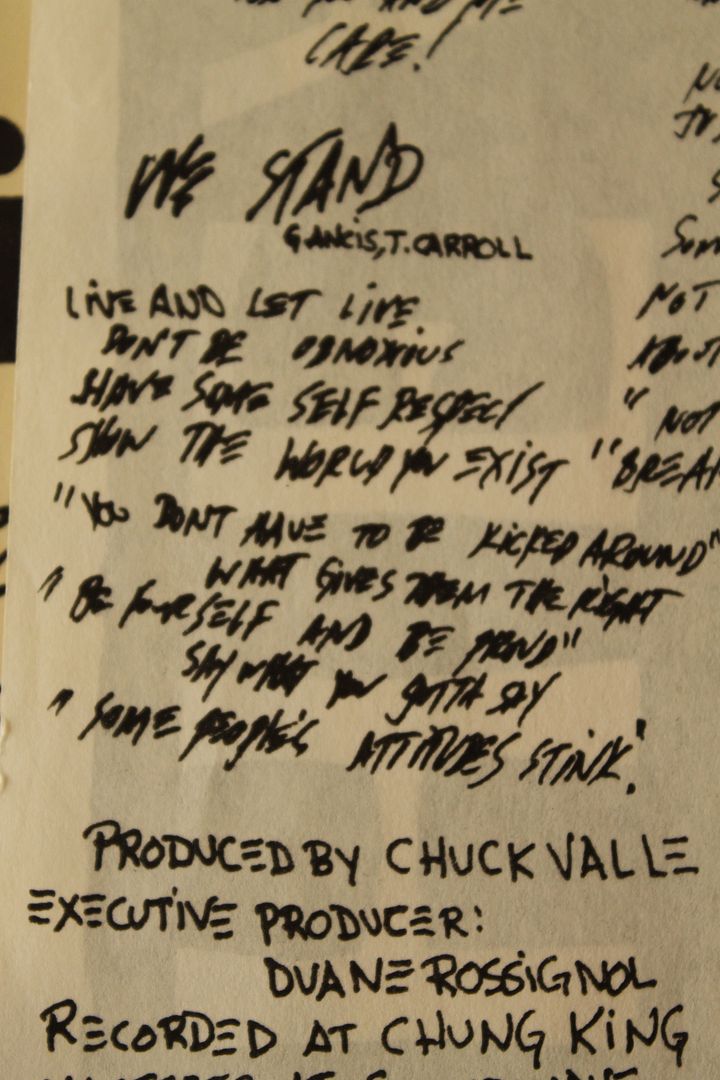 CARE!
WE STAND
G.ANCIS, T. CARROLL
LIVE AND LET LIVE
DON'T BE OBNOXIUS
HAVE SOME SELF RESPECT
SHOW THE WORLD YOU EXIST "BREA
"YOU DONT HAVE TO BE KICKED AROUND"
WHAT GIVES THEM THE RIGHT
" BE YOURSELF AND BE PROUD"
SAY WHAT YOU GOTTA SAY
" SOME PEOPLE'S ATTITUDES STINK."
PRODUCED BY CHUCK VALLE
EXECUTIVE PRODUCER:
DUANE ROSSIGNOL
RECORDED AT CHUNG KING
NOT
ABOUT
" NOT